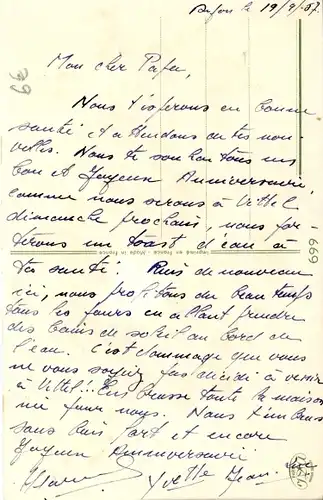 le 19/9/57.
Mon cher Papa,
Nous t'espérons en bonne
santé et attendons de tes nou-
velles. Nous te souhaitons un
bon et Joyeux Anniversaire,
comme nous serons à Vittel
dimanche prochain, nous por-
terons un toast d'eau à
Imprimé en France - Made in France
ta santé. de nouveau
ici, nous profitons du beau temps
tous les jours en allant prendre
des bains de soleil au bord de
l'eau. C'est dommage que vous
ne vous soyez pas décidé à venir
à Vittel! toute la maison
pour nous. Nous t'embras
sons bien fort et encore
Joyeux Anniversaire
Yvette Jean
699